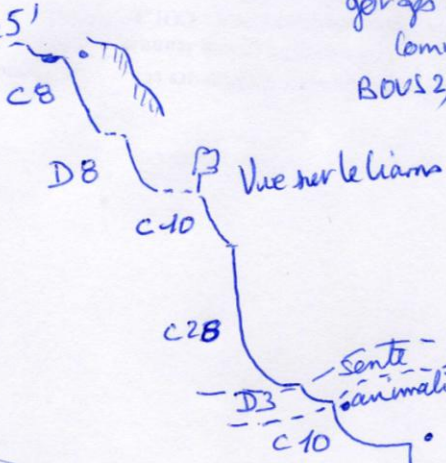 5'
gorges
C8
BOUS 2,
D8
Vue sur le Ciarns
C10
C28
Sente
animal
D3
C10